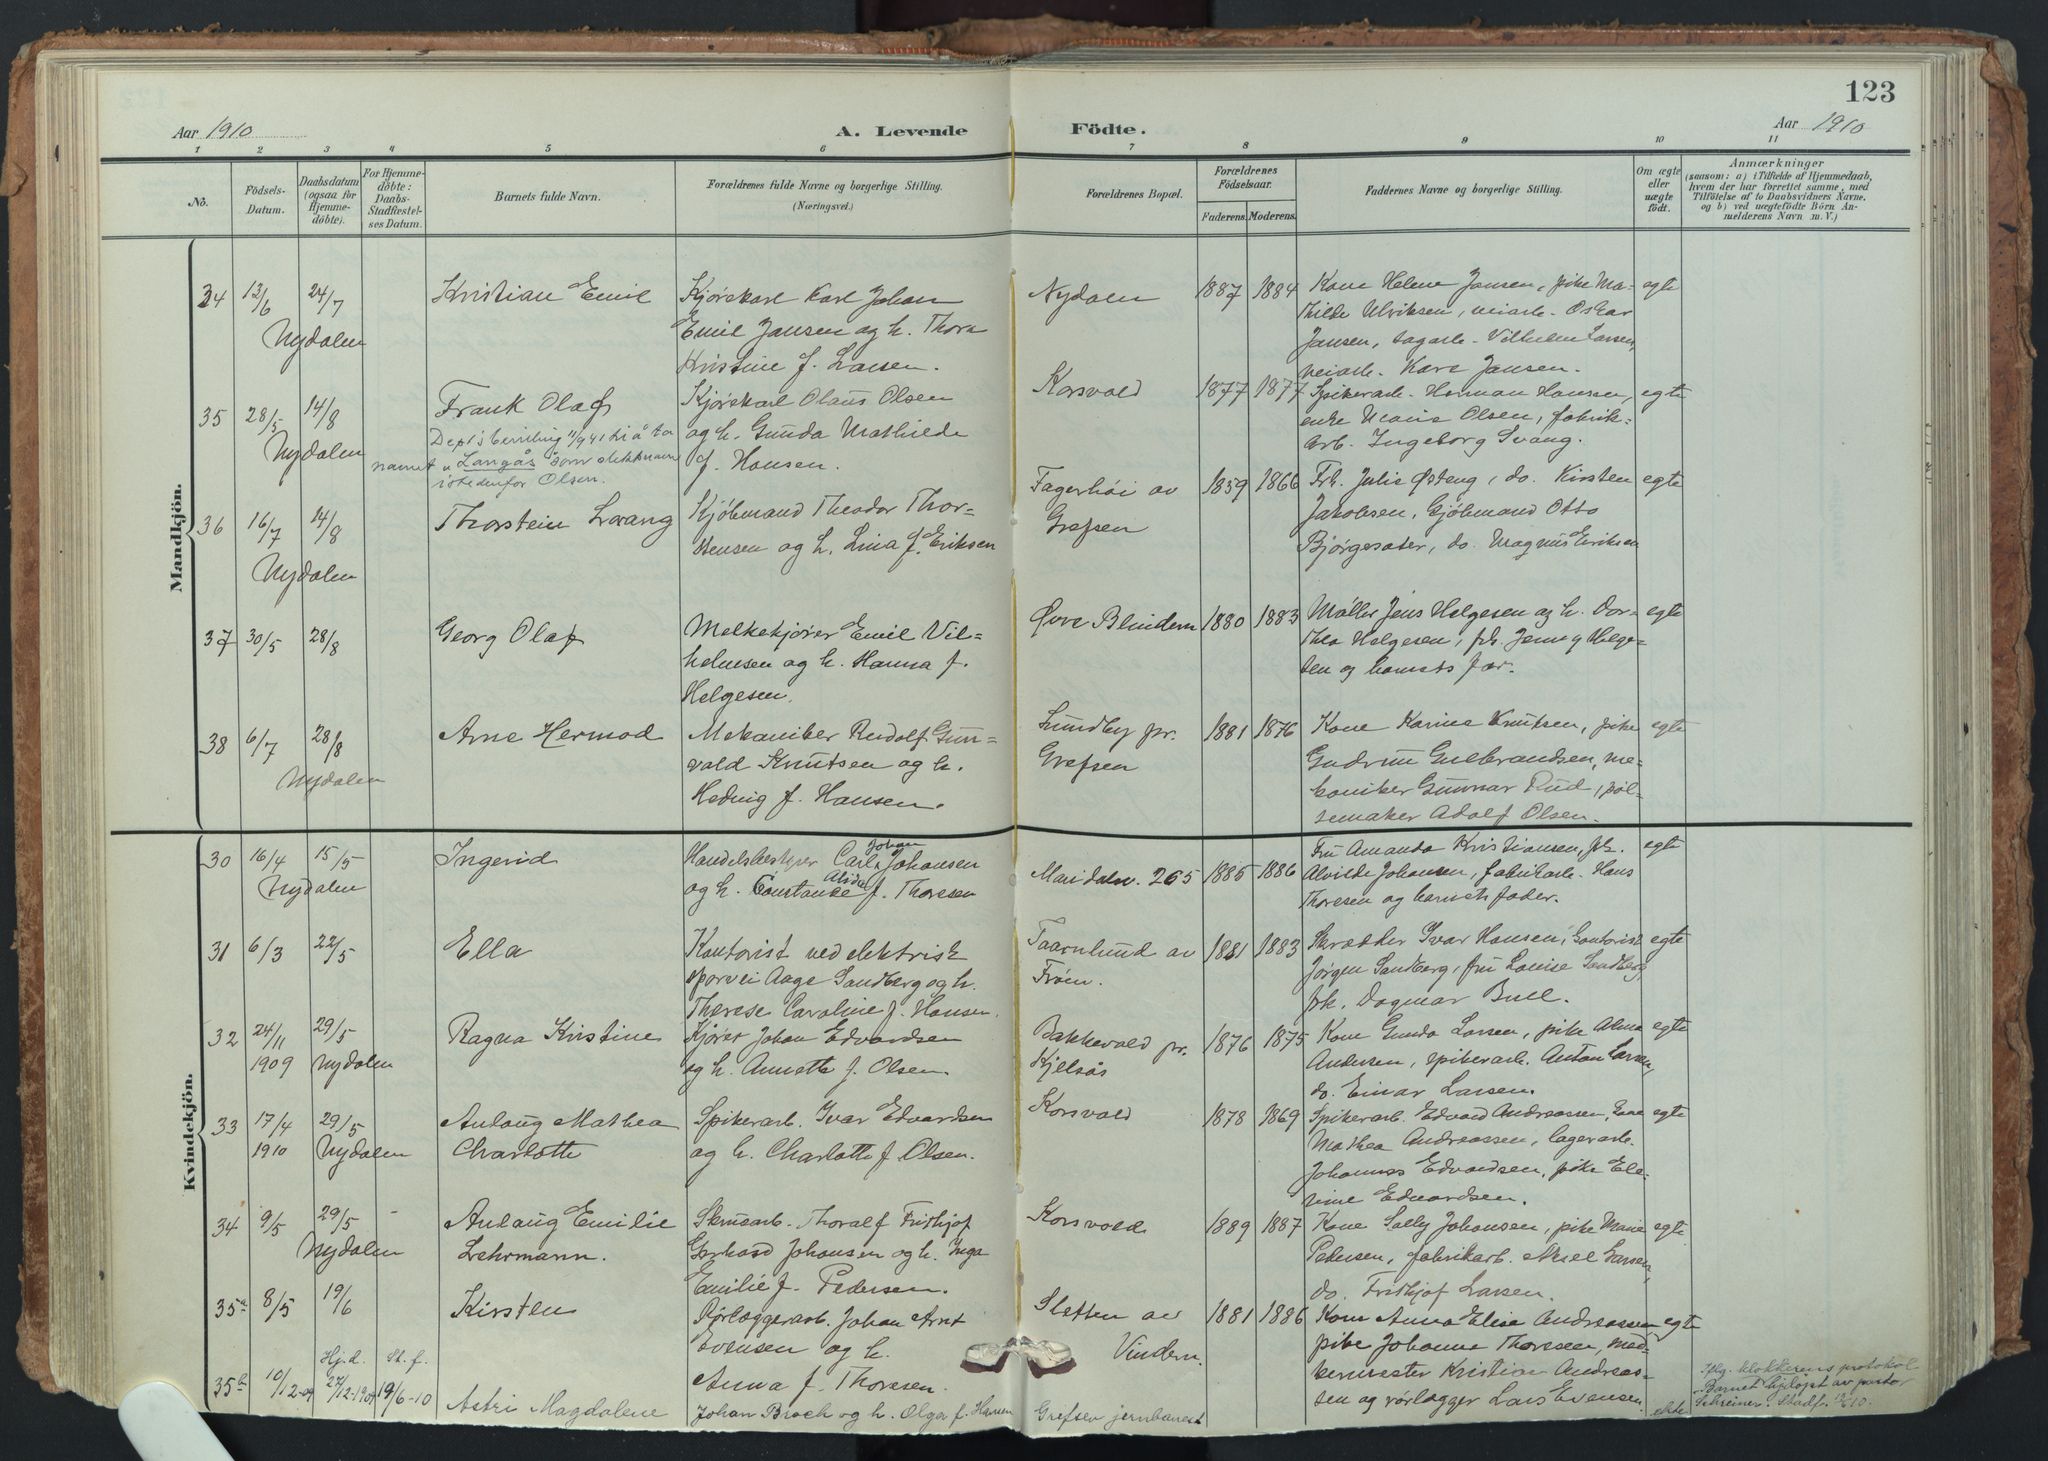 123
Aar 1910
A. Levende
Födte.
Aar 1910
1 2 3 4 5 6 7 8 9 10 11
No.
Födsels-
Datum.
Daabsdatum
(ogsaa for
Hjemme-
döbte).
For Hjemme-
döbte:
Daabs-
Stadfæstel-
ses Datum.
Barnets fulde Navn.
Forældrenes fulde Navne og borgerlige Stilling.
(Næringsvei.)
Forældrenes Bopæl.
Forældrenes
Födselsaar.
Faderens. Moderens.
Faddernes Navne og borgerlige Stilling.
Om ægte
eller
uægte
födt.
Anmærkninger
(saasom: a) i Tilfælde af Hjemmedaab,
hvem der har forrettet samme, med
Tilföielse af to Daabsvidners Navne,
og b) ved uægtefödte Börn An-
melderens Navn m. V.)
Mandkjön.
34 13/6 24/7
Nydalen
Kristian Emil
Kjørekarl Karl Johan
Emil Jansen og h. Thora
Kristine f. Larsen.
Nydalen
1887 1884
Kone Helene Jansen, pike Ma-
thilde Ulriksen, veiarb. Oskar
Jansen, sagarb. Vilhelm Larsen,
veiarb. Kare Jansen.
egte
35 28/5 14/8
Nydalen
Frank Olaf
Dept's bevilling 11/9 41 til å ta
navnet "Langås" som slektsnavn
istedenfor Olsen.
Kjørekarl Olaus Olsen
og h. Gunda Mathilde
f. Hansen.
Korsvold
1877 1877
Spikerarb. Herman Hansen,
enke Olsen, fabrik-
arb. Ingeborg Svang.
egte
36 16/7 14/8
Nydalen
Thorstein Svang
Kjøbmand Theodor Thor-
stensen og h. Lina f. Eriksen
Fagerhøi av
Grefsen
1859 1866
Frk. Julie Østeng, do. Kirsten
Jakobsen, Kjøbmand Otto
Bjørgesæter, do. Magnus Eriksen
egte
37 30/5 28/8
Georg Olaf
Melkekjører Emil Vil-
helmsen og h. Hanna f.
Helgesen.
Øvre Blindern
1880 1883
Møller Jens Helgesen og h. Dor-
thea Helgesen, frk. Jenny Helge-
sen og barnets far.
egte
38 6/7 28/8
Nydalen
Arne Hermod
Mekaniker Rudolf Gun-
vald Knutsen og h.
Hedvig f. Hansen.
Lundby pr.
Grefsen
1881 1876
Kone Karine Knutsen, pike
Gudrun Gulbrandsen, me-
kaniker Gunnar Rud, pøl-
semaker Adolf Olsen.
egte
Kvindekjön.
30 16/4 15/5
Nydalen
Ingerid
Handelsbestyrer Carl Johan Johansen
og h. Constance Alida f. Thoresen
Maridalsv. 265
1885 1886
Fru Amanda Kristiansen, frk.
Alvilde Johansen, fabrikarb. Hans
Thoresen og barnets fader.
egte
31 6/3 22/5
Ella
Kontorist ved elektrisk
sporvei Aage Sandberg og h.
Therese Caroline f. Hansen.
Taarnlund av
Frøen.
1881 1883
Skrædder Ivar Hansen, kontorist
Jørgen Sandberg, fru Louise Sandberg,
frk. Dagmar Bull.
egte
32 24/11 29/5
1909 Nydalen
Ragna Kristine
Kjører Johan Edvardsen
og h. Annette f. Olsen.
Bakkevold pr.
Kjelsås
1876 1875
Kone Gunda Larsen, pike Alma
Andersen, spikerarb. Anton Larsen,
do. Einar Larsen.
egte
33 17/4 29/5
1910 Nydalen
Aulaug Mathea
Charlotte
Spikerarb. Ivar Edvardsen
og h. Charlotte f. Olsen.
Korsvold
1878 1869
Spikerarb. Edvard Andreassen, kone
Mathea Andreassen, lagerarb.
Johannes Edvardsen, pike Ele-
nine Edvardsen.
egte
34 9/5 29/5 -
Nydalen
Aulaug Emilie
Lehrmann.
Skruearb. Thoralf Fridtjof
Gerhard Johansen og h. Inga
Emilie f. Pedersen.
Korsvold
1889 1887
Kone Sally Johansen, pike Marie
Pedersen, fabrikarb. Aksel Larsen,
do. Fridtjof Larsen.
egte
35a 8/5 19/6
Kirsten
Rørlæggerarb. Johan Arnt
Evensen og h.
Anna f. Thoresen.
Sletten av
Vindern.
1881 1886
Kone Anna Elise Andreassen
pike Johanne Thoresen, møl-
Kristian Andreas-
sen og rørlægger Lars Evensen.
egte
35b 10/12-09 Hj.d. 27/12-1909 St.f. 19/6-10
Astri Magdalene
Johan Broch og h. Olga f. Hansen
Grefsen jernbanest
ekte
Iflg. klokkerens protokol
Barnet hj.døpt av pastor
Schreiner. Stadf. 19/6 10.